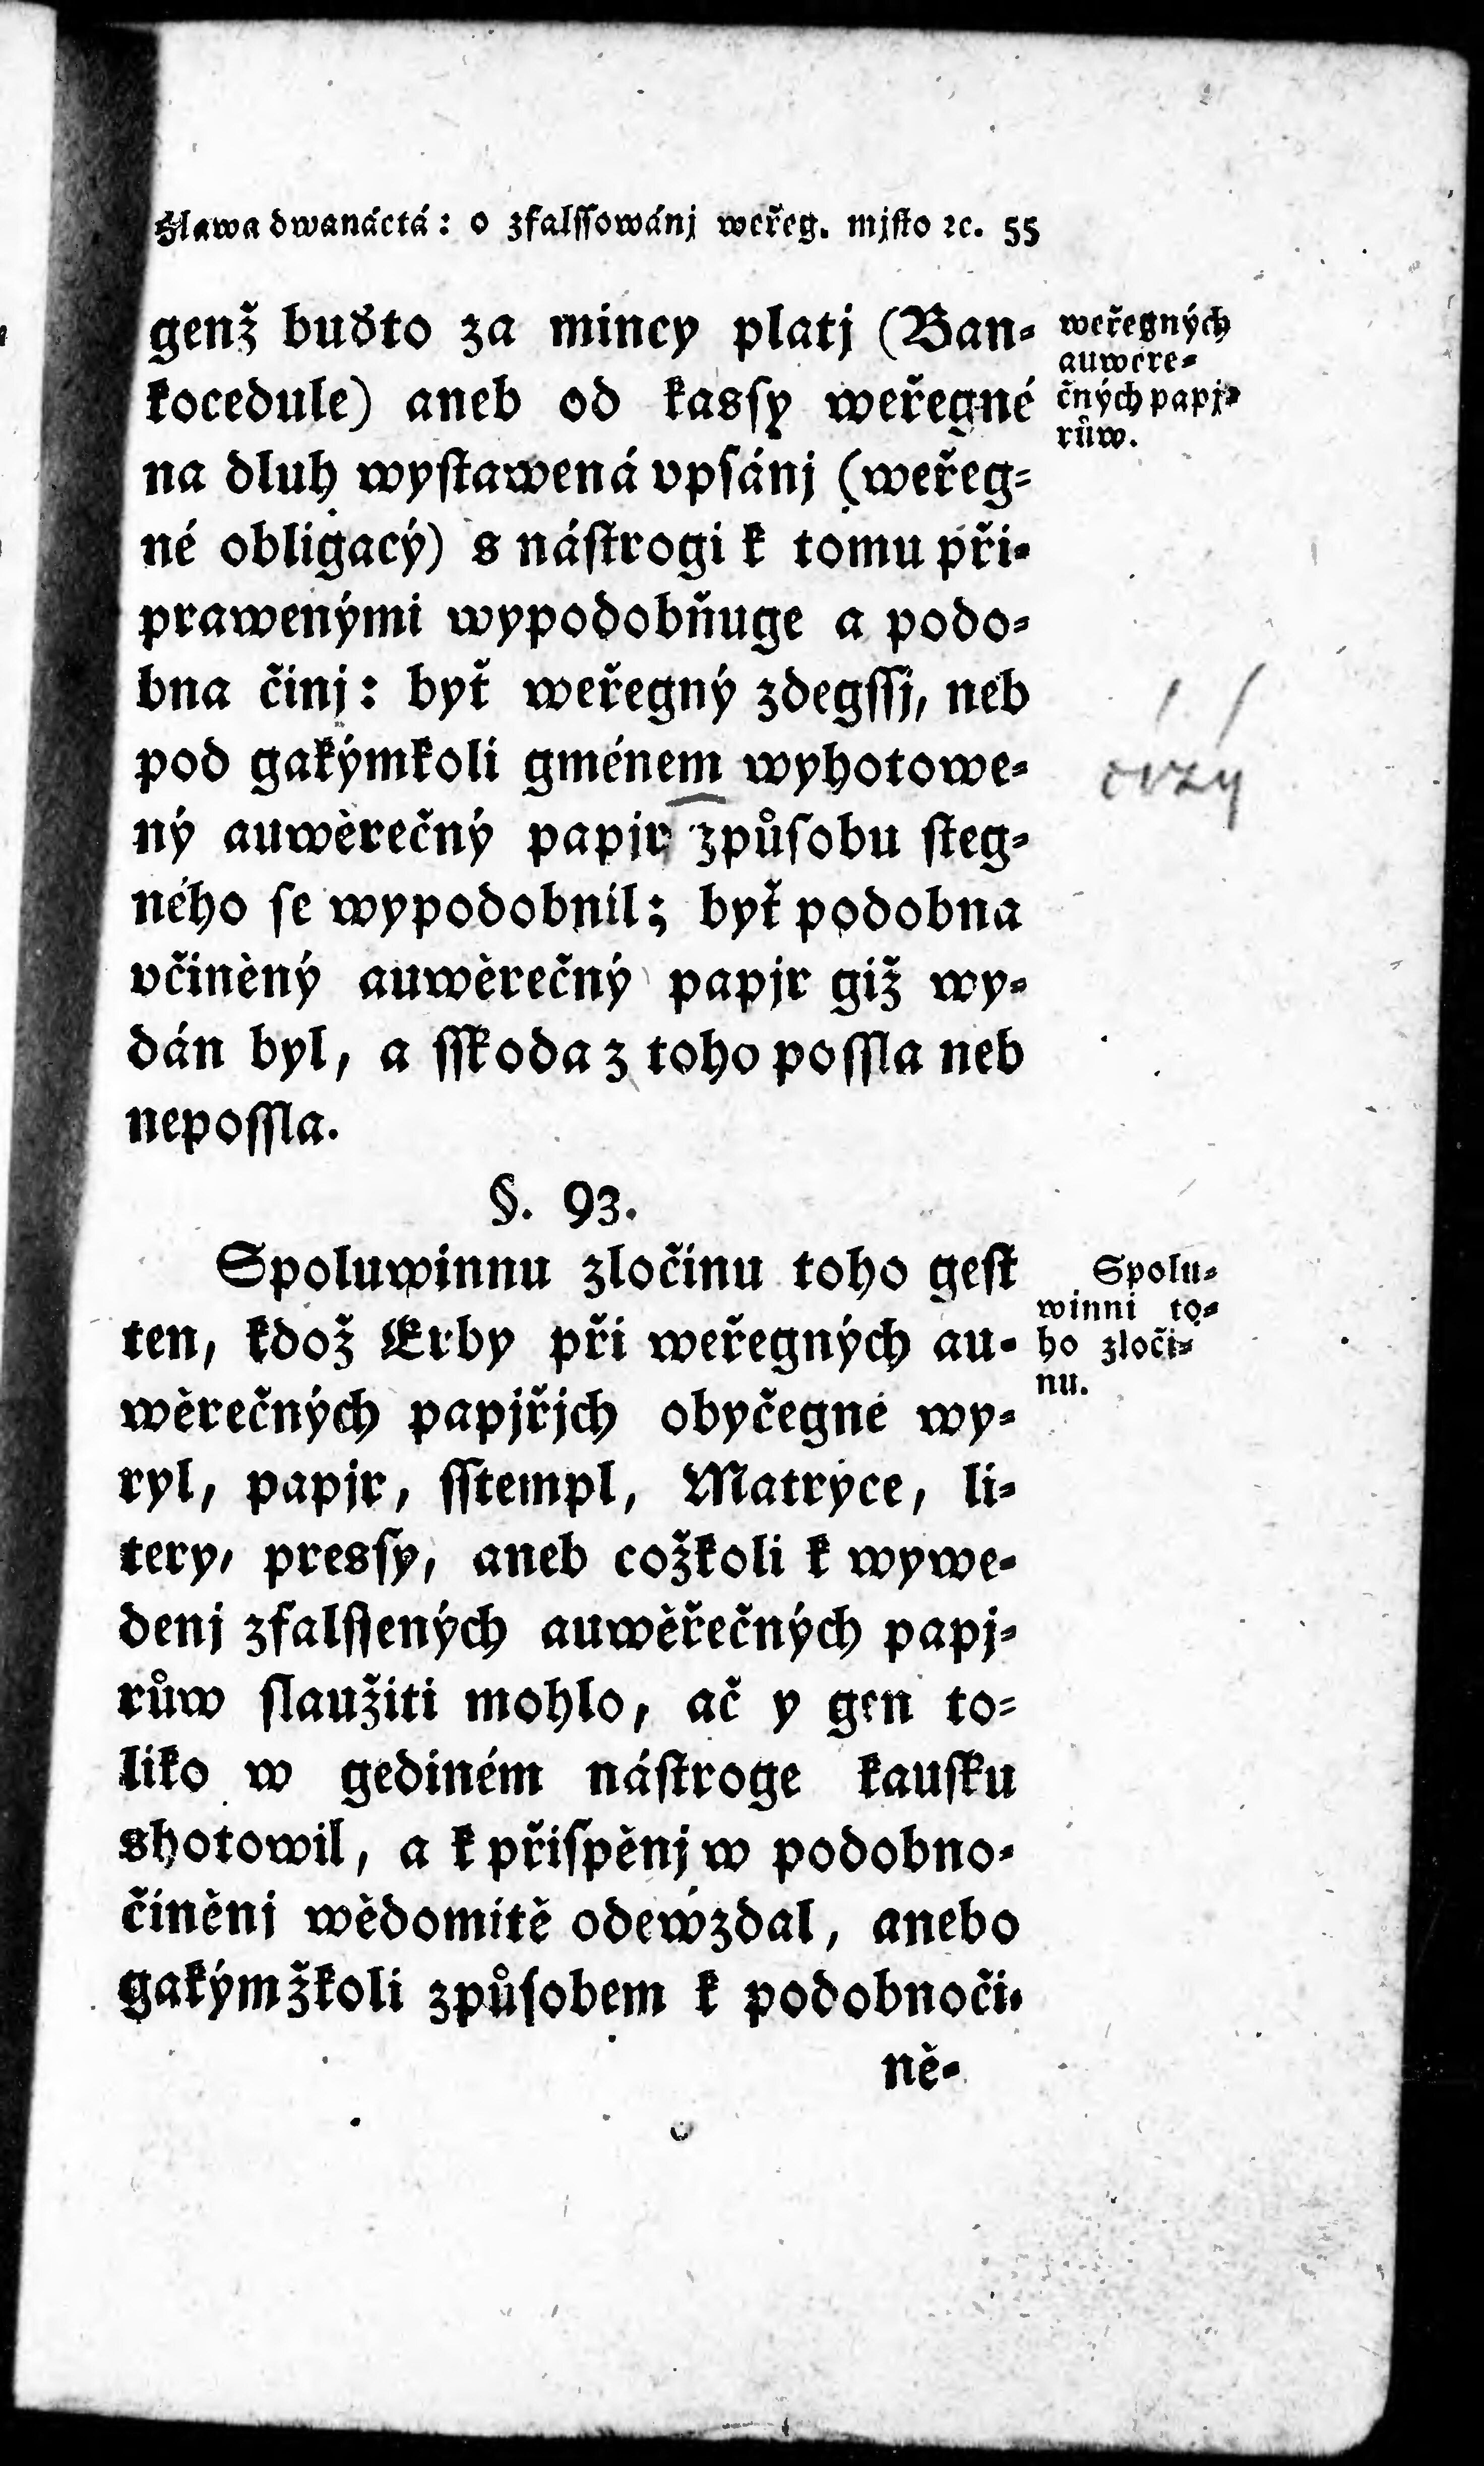 Hlawa dwanáctá: o zfalssowánj weřeg. mjsto ꝛc. 55
genž buďto za mincy platj (Ban-
kocedule) aneb od kassy weřegné
na dluh wystawená vpsánj (weřeg-
né obligacý) s nástrogi k tomu při-
prawenými wypodobňuge a podo-
bna činj: byť weřegný zdegssj, neb
pod gakýmkoli gménem wyhotowe-
ný auwěrečný papjr způsobu steg-
ného se wypodobnil; byť podobna
včiněný auwěrečný papjr giž wy-
dán byl, a sskoda z toho possla neb
nepossla.
weřegných
auwěre-
čných papj-
růw.
§. 93.
Spoluwinnu zločinu toho gest
ten, kdož Erby při weřegných au-
wěrečných papjřjch obyčegné wy-
ryl, papjr, sstempl, Matryce, li-
tery, pressy, aneb cožkoli k wywe-
denj zfalssených auwěřečných papj-
růw slaužiti mohlo, ač y gen to-
liko w gediném nástroge kausku
shotowil, a k přispěnj w podobno-
činěnj wědomitě odewzdal, anebo
gakýmžkoli způsobem k podobnoči-
ně-
Spolu-
winni to-
ho zloči-
nu.